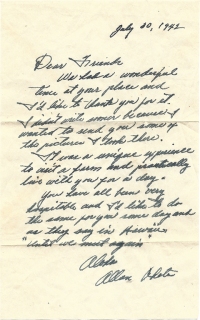 July 20, 1942
Dear Friends
We had a wonderful
time at your place and
I'd like to thank you for it.
I didn't write sooner because I
wanted to send you some of
the pictures I took there.
It was a unique experience
to visit a farm and practically
live with you for a day.
You have all been very
hospitable, and I'd like to do
the same for you some day and
as they say in Hawaii
"until we meet again"
Aloha
Allan